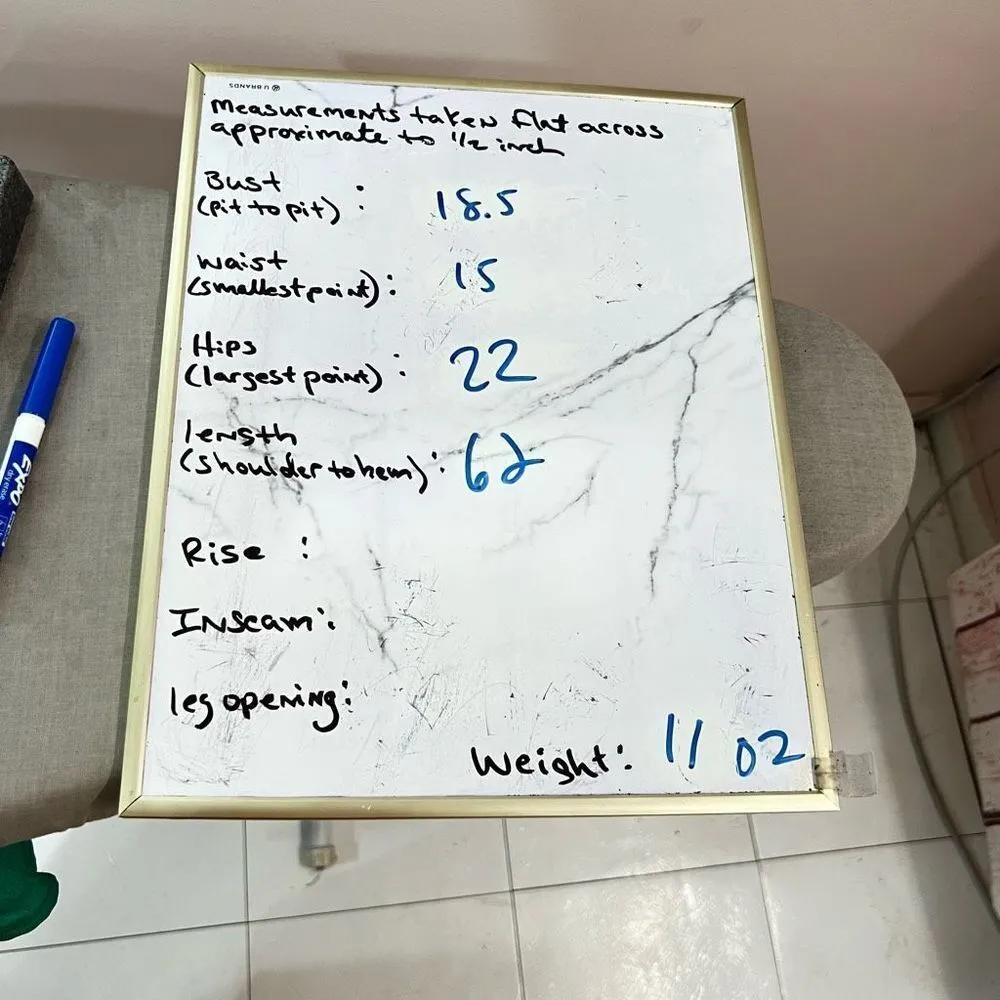 U BRANDS
Measurements taken flat across
approximate to 1/2 inch
Bust
(pit to pit) : 18.5
waist
(smallest point) : 15
Hips
(largest point) : 22
length
(shoulder to hem) : 62
Rise :
Inseam :
leg opening :
Weight : 11 oz
EXPO
dry erase